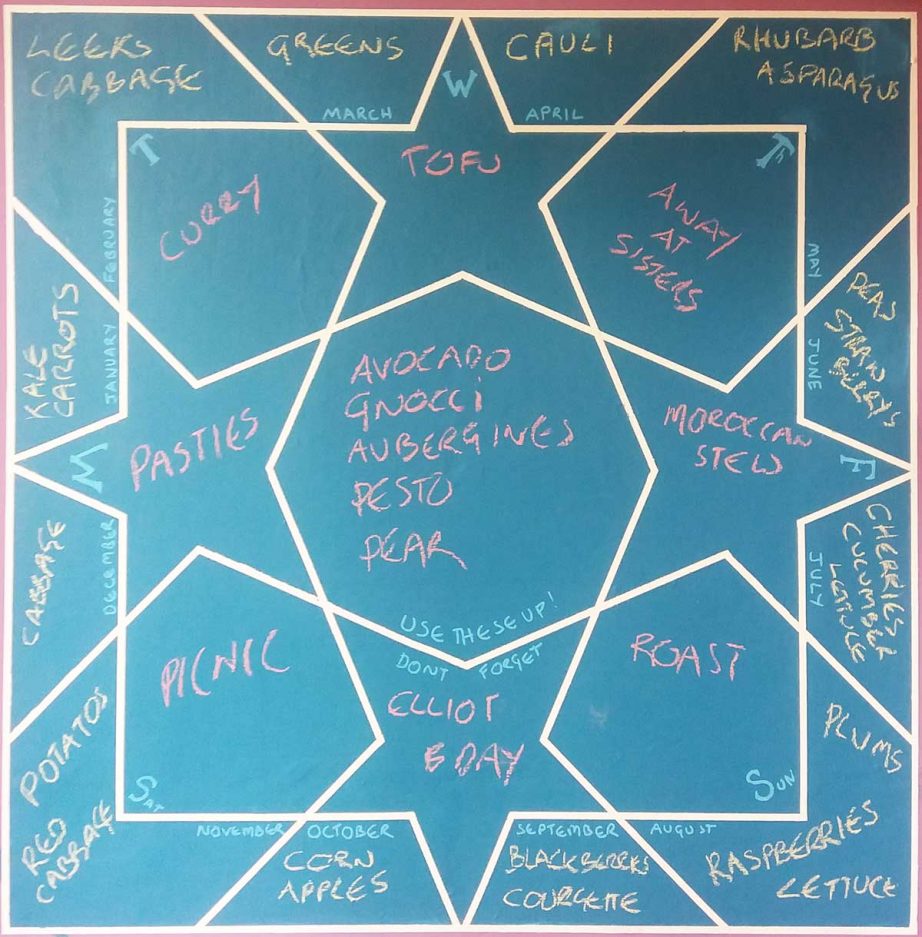 LEEKS
CABBAGE
GREENS
CAULI
RHUBARB
ASPARAGUS
MARCH
W
APRIL
T
TOFU
Th
CURRY
AWAY
AT
SISTERS
FEBRUARY
MAY
KALE
CARROTS
JANUARY
JUNE
PEAS
STRAW
BERRYS
AVOCADO
GNOCCI
AUBERGINES
PESTO
PEAR
PASTIES
MOROCCAN
STEW
M
F
CABBAGE
DECEMBER
JULY
CHERRIES
CUCUMBER
LETTUCE
USE THESE UP!
DONT FORGET
PICNIC
ROAST
ELLIOT
B DAY
POTATOS
RED
CABBAGE
PLUMS
SAT
SUN
NOVEMBER
OCTOBER
SEPTEMBER
AUGUST
CORN
APPLES
BLACKBERRIES
COURGETTE
RASPBERRIES
LETTUCE